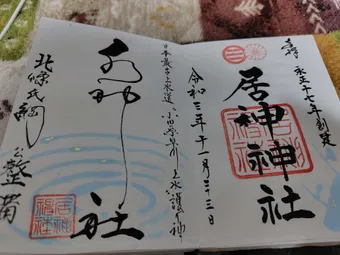 奉拝
永正十七年創建
居神神社
令和三年十一月
日本最古上水道
小田原早川上水護り神
水神社
北條氏綱公整備